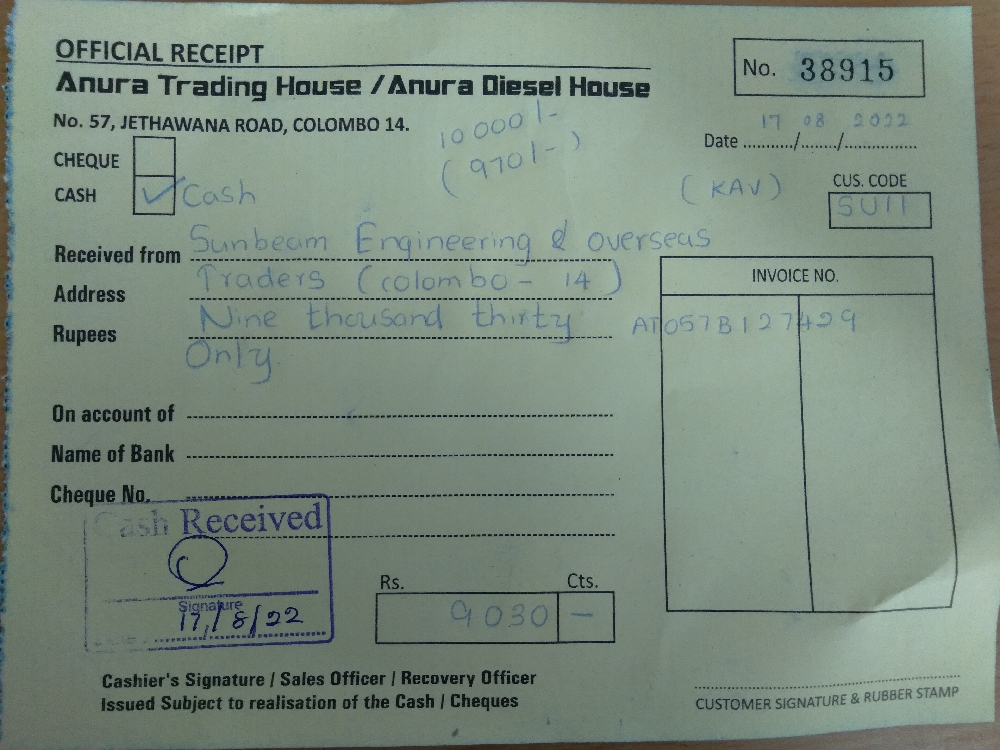 OFFICIAL RECEIPT
Anura Trading House / Anura Diesel House
No. 57, JETHAWANA ROAD, COLOMBO 14.
No. 38915
Date 17/08/2022
10000/-
(970/-)
CHEQUE
CASH ✓ Cash
(KAV)
CUS. CODE
SU11
Received from Sunbeam Engineering & overseas
Address Traders (colombo - 14)
Rupees Nine thousand thirty
Only.
INVOICE NO.
AT057B127429
On account of
Name of Bank
Cheque No.
Cash Received
Signature
17/8/22
Rs. Cts.
9030 —
Cashier's Signature / Sales Officer / Recovery Officer
Issued Subject to realisation of the Cash / Cheques
CUSTOMER SIGNATURE & RUBBER STAMP